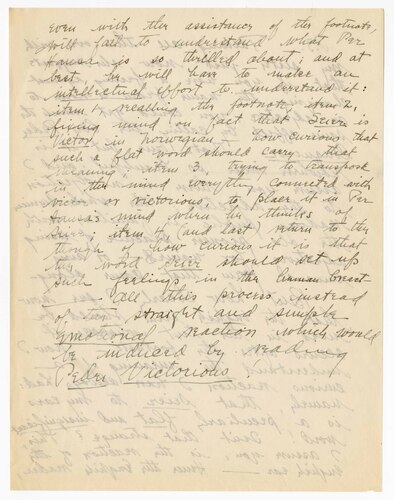 even with the assistance of the footnote,
will fail to understand what Per
Hansa is so thrilled about; and at
best, he will have to make an
intellectual effort to understand it:
item 1, recalling the footnote, item 2,
fixing mind on fact that Seier is
Victor in Norwegian — how curious that
such a flat word should carry that
meaning; item 3 trying to transpose
in the mind everything connected with
victor or victorious, to place it in Per
Hansa's mind when he thinks of
Seier; item 4 (and last) return to the
though of how curious it is that
this word Seier should set up
such feelings in the human breast —
all this process instead
of the straight and simple
emotional reaction which would
be induced by reading
Peder Victorious